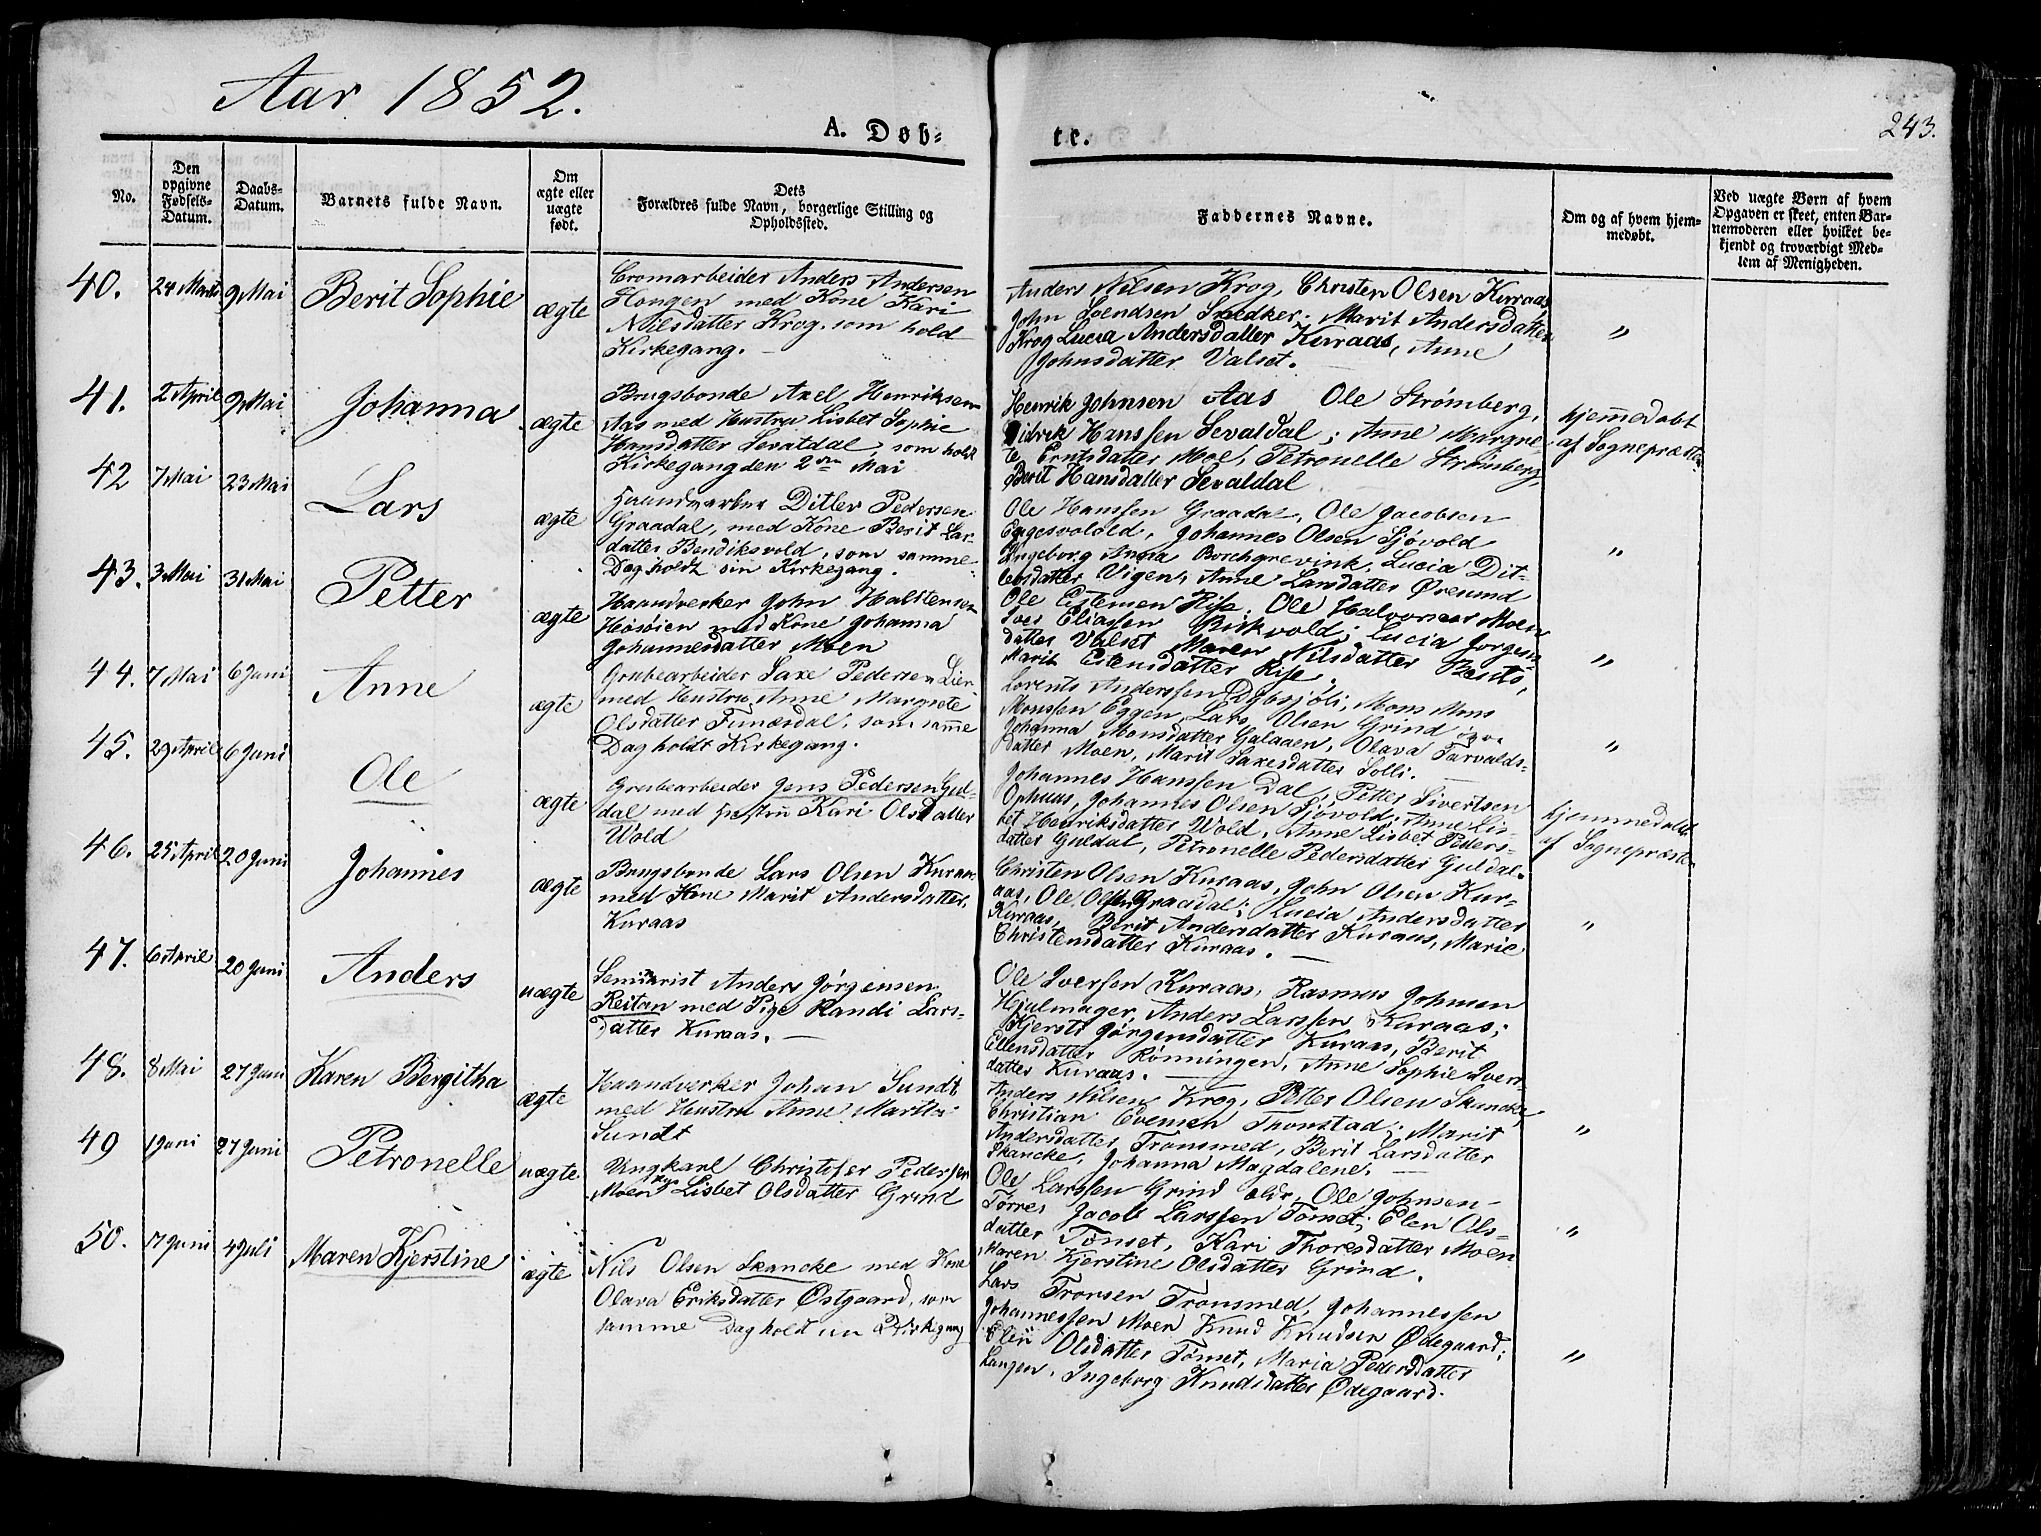 Aar 1852.
A. Døb=
te.
243.
No.
Den opgivne Fødsels-Datum.
Daabs-Datum.
Barnets fulde Navn.
Om ægte eller uægte født.
Dets Forældres fulde Navn, borgerlige Stilling og Opholdssted.
Faddernes Navne.
Om og af hvem hjemmedøbt.
Ved uægte Børn af hvem Opgaven er skeet, enten Barnemoderen eller hvilket bekjendt og troværdigt Medlem af Menigheden.
40. 24 Marts 9 Mai Berit Sophie ægte
Cromarbeider Anders Andersen
med Kone Kari
Nilsdatter Krog, som hold
Kirkegang. —
Anders Nilsen Krog, Christen Olsen Kuraas,
John Svendsen Snedker; Marit Andersdatter
Krog Lucia Andersdatter Kuraas, Anne
Johnsdatter Valset. —
"
41. 2 April 9 Mai Johanna ægte
Brugsbonde Axel Henriksen
Aas med Hustru Lisbet Sophie
Hansdatter Sevaldal, som holdt
Kirkegang den 2den Mai
Henrik Johnsen Aas Ole Strømberg,
Didrik Hanssen Sevaldal; Anne Margre-
te Erntsdatter Moe, Petronelle Strømberg,
Berit Hansdatter Sevaldal
hjemmedøbt
af Sognepræsten
42 7 Mai 23 Mai Lars ægte
Haandverker Ditlev Pedersen
Graadal, med Kone Berit Lar-
datter Bendiksvold, som samme
Dag holdt sin Kirkegang.
Ole Hanssen Graadal, Ole Jacobsen
Engesvolded, Johannes Olsen Sjøvold
Ingeborg Anna Borchgrevink, Lucia Dit-
levsdatter Vigen, Anne Larsdatter Øresund
"
43. 3 Mai 31 Mai Petter ægte
Haandverker John Halstensen
Høsøien med Kone Johanna
Johannesdatter Moen
Ole Estensen Rise, Ole Halvorsen Moen
Iver Eliassen Birkvold; Lucia Jørgens-
datter Valset Maren Nilsdatter
Marit Estensdatter Rise.
"
44. 7 Mai 6 Juni Anne ægte
Grubearbeider Saxe Pedersen Lien
med Hustru Anne Margrete
Olsdatter Funæsdal, som samme
Dag holdt Kirkegang.
Lorents Anderssen Dybsjøli, Mons Mons
Monssen Eggen, Lars Olsen Grind
Johanna Monsdatter Galaaen, Olava Tarvalds-
datter Moen, Marit Saxesdatter Solli.
"
45. 29 April 6 Juni Ole ægte
Grubearbeider Jens Pedersen Gul-
dal med Hustru Kari Olsdatter
Wold
Johannes Hanssen Dal, Petter Sivertsen
Ophuus, Johannes Olsen Sjøvold; Anne Lis-
bet Henriksdatter Wold, Anne Lisbet Peders-
datter Guldal, Petronelle Pedersdatter Guldal.
hjemmedøbt
af Sognepræsten
46. 25 April 20 Juni Johannes ægte
Brugsbonde Lars Olsen Kuraas
med Kone Marit Andersdatter
Kuraas
Christen Olsen Kuraas, John Olsen Kur-
aas, Ole Olsen Graadal; Lucia Andersdatter
Kuraas, Berit Andersdatter Kuraas, Marie
Christensdatter Kuraas. —
"
47. 6 April 20 Juni Anders uægte
Seminarist Anders Jørgensen
Reitan med Pige Randi Lars-
datter Kuraas. —
Ole Iversen Kuraas, Rasmus Johnsen
Hjulmager, Anders Larssen Kuraas;
Kjersti Jørgensdatter Kuraas, Berit
Ellensdatter Rønningen, Anne Sophie Iver-
datter Kuraas. —
48. 8 Mai 27 Juni Karen Bergitha ægte
Haandverker Johan Sundt
med Hustru Anne Martha
Sundt
Anders Nilsen Krog, Petter Olsen Skancke,
Christian Evensen Thonstad; Marit
Andersdatter Tronsmed, Berit Larsdatter
Skancke, Johanna Magdalene. —
"
49 1 Juni 27 Juni Petronelle uægte
Ungkarl Christofer Pedersen
Moen Lisbet Olsdatter Grind
Ole Larssen Grind Ole Johnsen
Torres Jacob Larssen Tomset; Elen Ols-
datter Tønset, Kari Thoresdatter Moen
Maren Kjerstine Olsdatter Grind.
"
50. 7 Juni 4 Juli Maren Kjerstine ægte
Nils Olsen Skancke med Kone
Olava Eriksdatter Østgaard, som
samme Dag holdt sin Kirkegang
Lars Tronsen Tronsmed, Johannessen
Johannessen Moen Knud Knudsen Ødegaard;
Elen Olsdatter Tømset, Maria Pedersdatter
Langen, Ingeborg Knudsdatter Ødegaard.
"